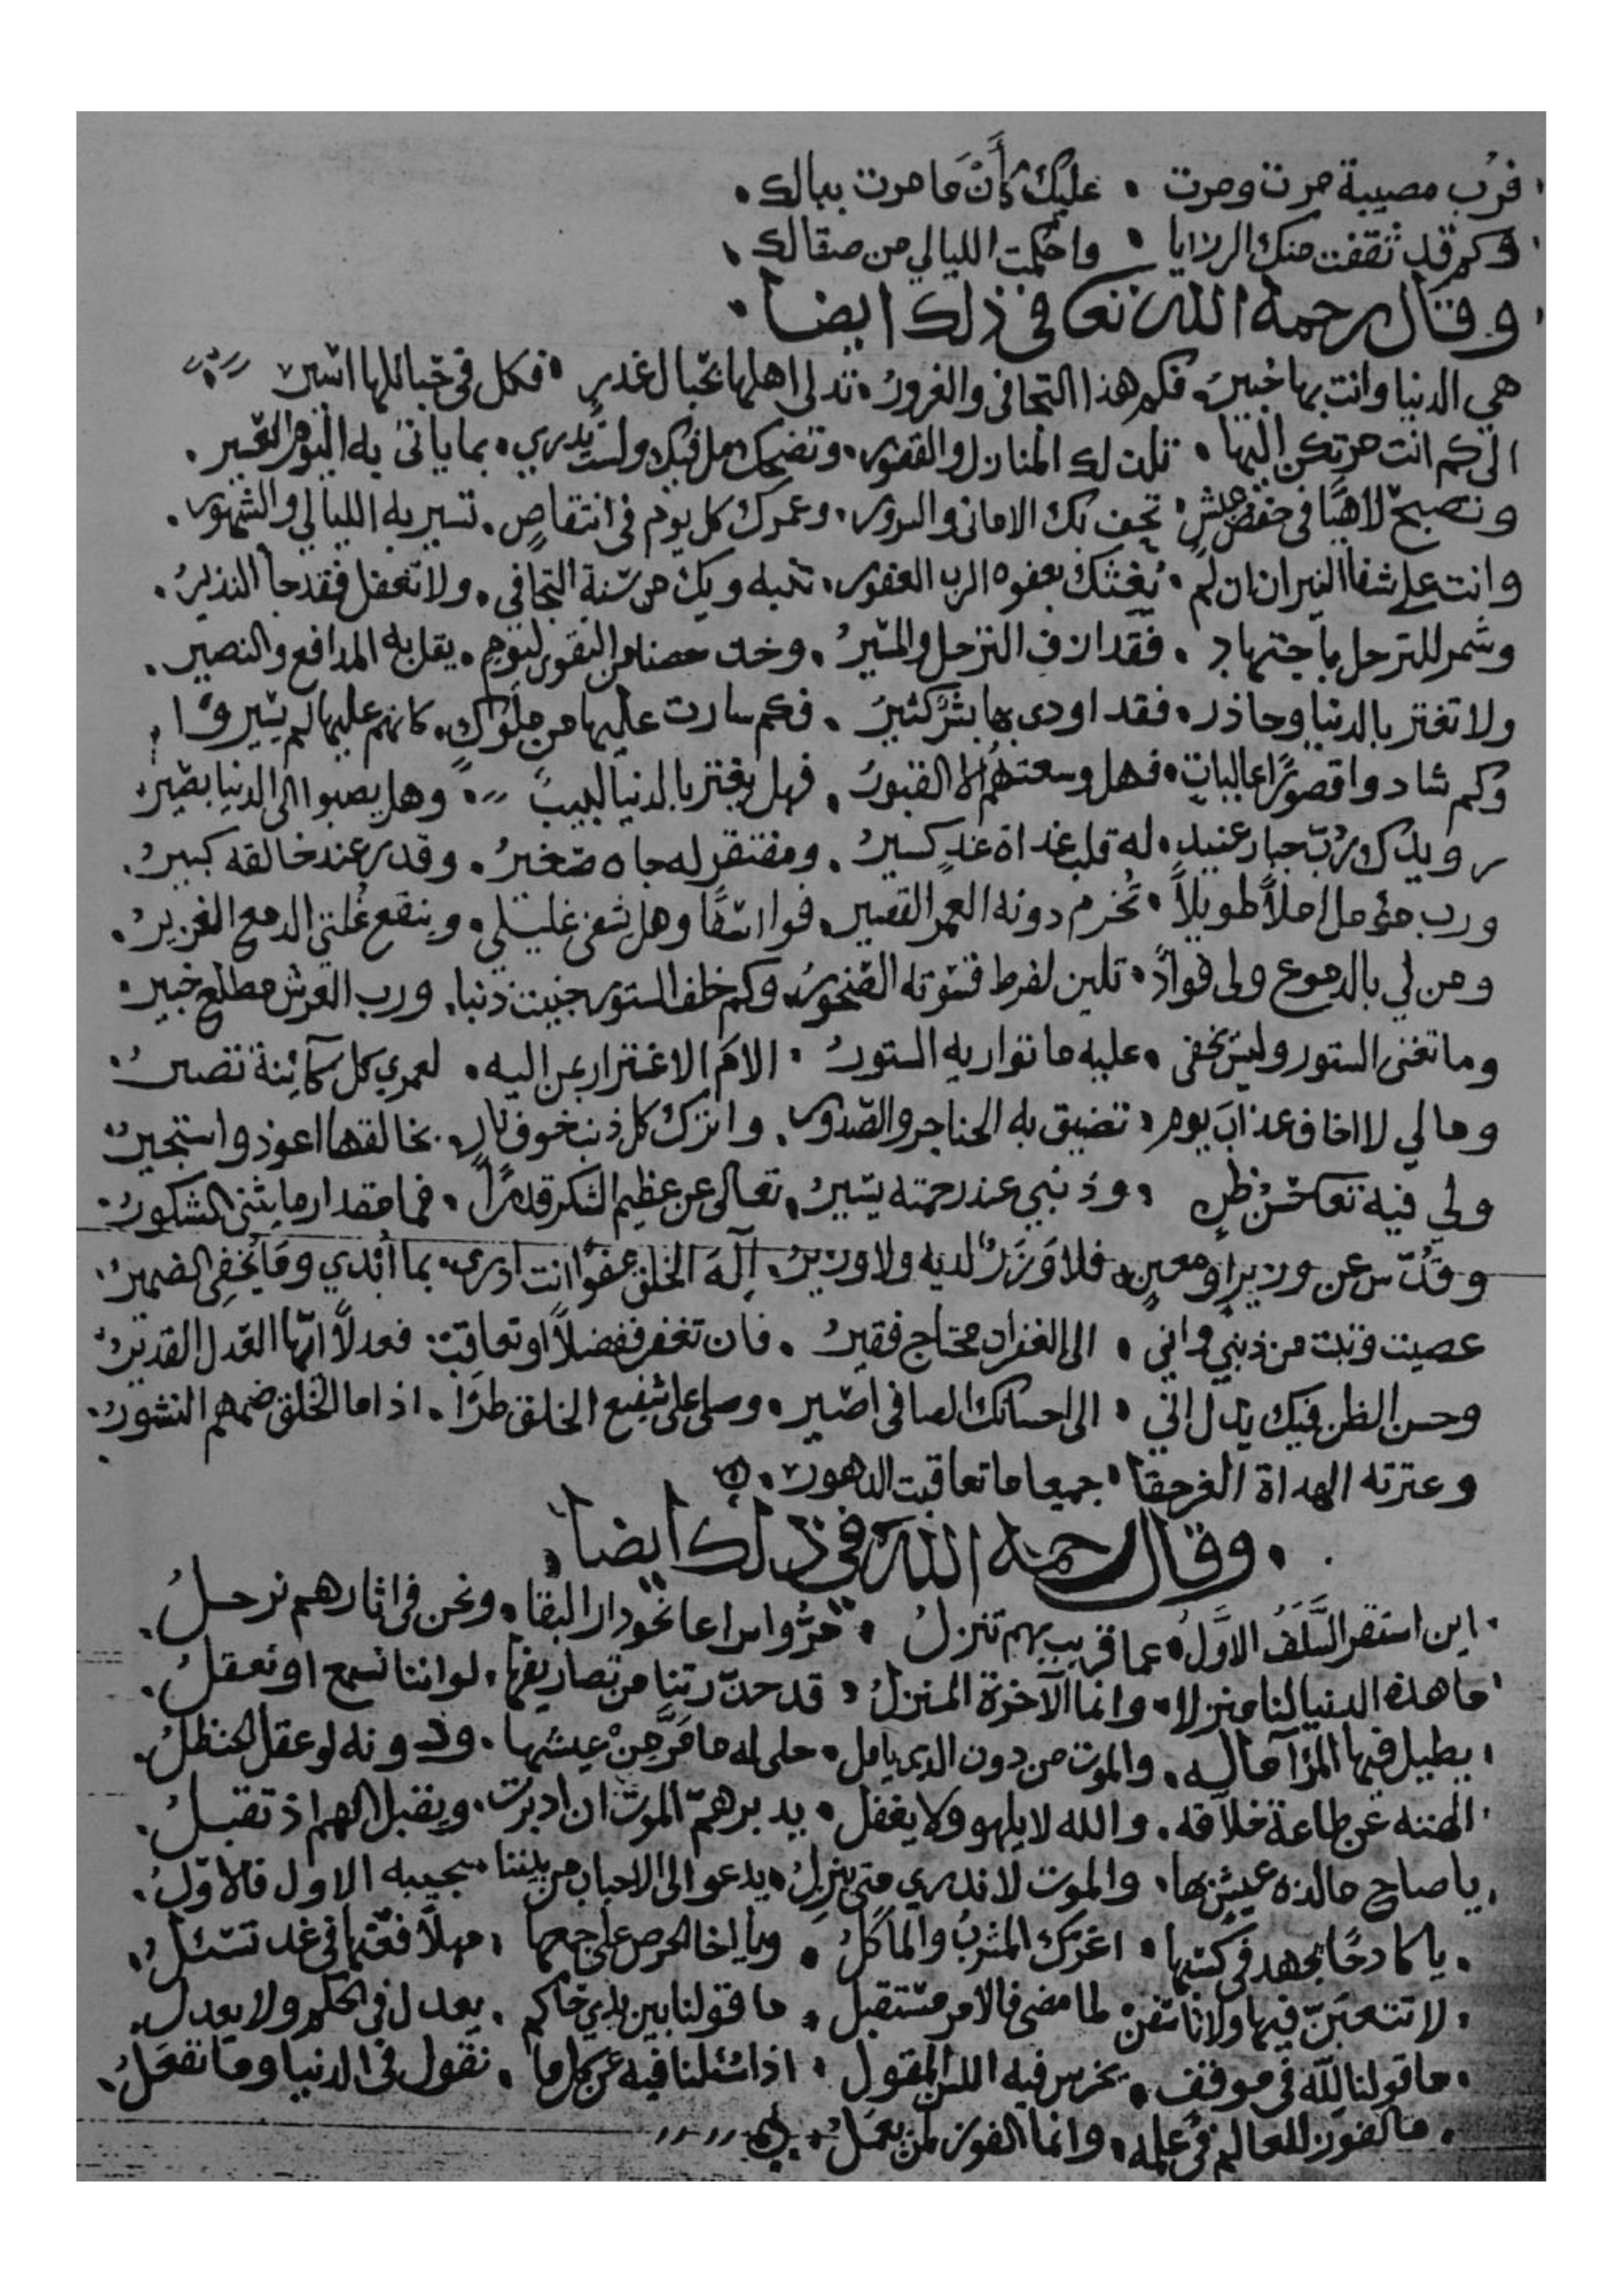 فرب مصيبة مرت ومرت . عليك كأن ما مرت ببالك .
وكم قد ثقفت منك الرزايا . واحكمت الليالي من صقالك .
وقال رحمه الله تعا في ذلك ايضا .
هي الدنيا وانت بها خبير . فكم هذا التجافي والغرور . تدلي اهلها بحبال غدر . فكل في حبائلها اسير
الى كم انت مرتكن اليها . تلذ لك المنازل والقصور . وتضحك مل فيك ولست تدري . بما ياتى به اليوم العسير .
وتصبح لاهيا في خفض عيش . تحف بك الاماني والسرور . وعمرك كل يوم في انتقاص . تسير به الليالي والشهور .
وانت على شفا النيران ان لم . يغثك بعفوه الرب الغفور . تنبه ويك من سنة التجافي . ولا تغفل فقد جا النذير .
وشمر للترحل باجتهاد . فقد ازف الترحل والمسير . وخذ حصنا من التقوى ليوم . يقل به المدافع والنصير .
ولا تغتر بالدنيا وحاذر . فقد اودى بها بشر كثير . فكم سارت عليها من ملوك . كانهم عليها لم يسيروا .
وكم شادوا قصورا عاليات . فهل وسعتهم الا القبور . فهل يغتر بالدنيا لبيب . وهل يصبوا الى الدنيا بصير
رويدك رب جبار عنيد . له قلب غداة غد كسير . ومفتقر له جاه صغير . وقدر عند خالقه كبير .
ورب مؤمل املا طويلا . تخرم دونه العمر القصير . فوا اسفا وهل يشفى غليلي . وينقع غلتي الدمع الغزير .
ومن لي بالدموع ولى فواد . تلين لفرط قسوته الصخور . وكم خلف الستور جنيت ذنبا . ورب العرش مطلع خبير .
وما تغنى الستور وليس يخفى . عليه ما تواريه الستور . الام الاغترار بمن اليه . لعمري كل كآئنة تصير .
ومالي لا اخاف عذاب يوم . تضيق به الحناجر والصدور . واترك كل ذنب خوف نار . بخالقها اعوذ واستجير
ولي فيه تعا حسن ظن . وذنبي عند رحمته يسير . تعالى عن عظيم الشكر قدرا . فما مقدار ما يثنى الشكور .
وقدس عن وزير او معين . فلا وزر لديه ولا وزير . اله الخلق عفوا انت ادرى . بما أبدي وما يخفي الضمير .
عصيت وتبت من ذنبي واني . الى الغفران محتاج فقير . فان تغفر ففضلا او تعاقب . فعدلا ايها العدل القدير
وحسن الظن فيك يدل اني . الى احسانك الصافى اصير . وصلى على شفيع الخلق طرا . اذا ما الخلق ضمهم النشور .
وعترته الهداة الغر حقا . جميعا ما تعاقبت الدهور .
وقال رحمه الله في ذلك ايضا
اين استقر السلف الاول . عما قريب بهم تنزل . مروا سراعا نحو دار البقا . ونحن في اثارهم نرحل .
ما هذه الدنيا لنا منزلا . وانما الآخرة المنزل . قد حذرتنا من تصاريفها . لو اننا نسمع او نعقل .
يطيل فيها المرؤ آماله . والموت من دون الذي يامل . حلى له ما مر من عيشها . ودونه لو عقل الحنظل .
الهته عن طاعة خلاقه . والله لا يلهو ولا يغفل . يدبر هم الموت ان ادبرت . ويقبل الهم اذ تقبل .
يا صاح ما لذة عيش بها . والموت لا ندري متى ينزل . يدعو الى الاحباب من بيننا . يجيبه الاول فالاول .
يا كادحا يجهد في كسبها . اغرك المشرب والماكل . ويا اخا الحرص على جمعها . مهلا فعنها في غد تسئل .
لا تتعبن فيها ولا تاسفن لما مضى فالامر مستقبل . ما قولنا بين يدي حاكم . يعدل في الحكم ولا يعدل .
ما قولنا لله في موقف . يخرس فيه اللسن المقول . اذا سئلنا فيه عن كل ما . نقول في الدنيا وما نفعل .
ما الفوز للعالم في علمه . وانما الفوز لمن يعمل .